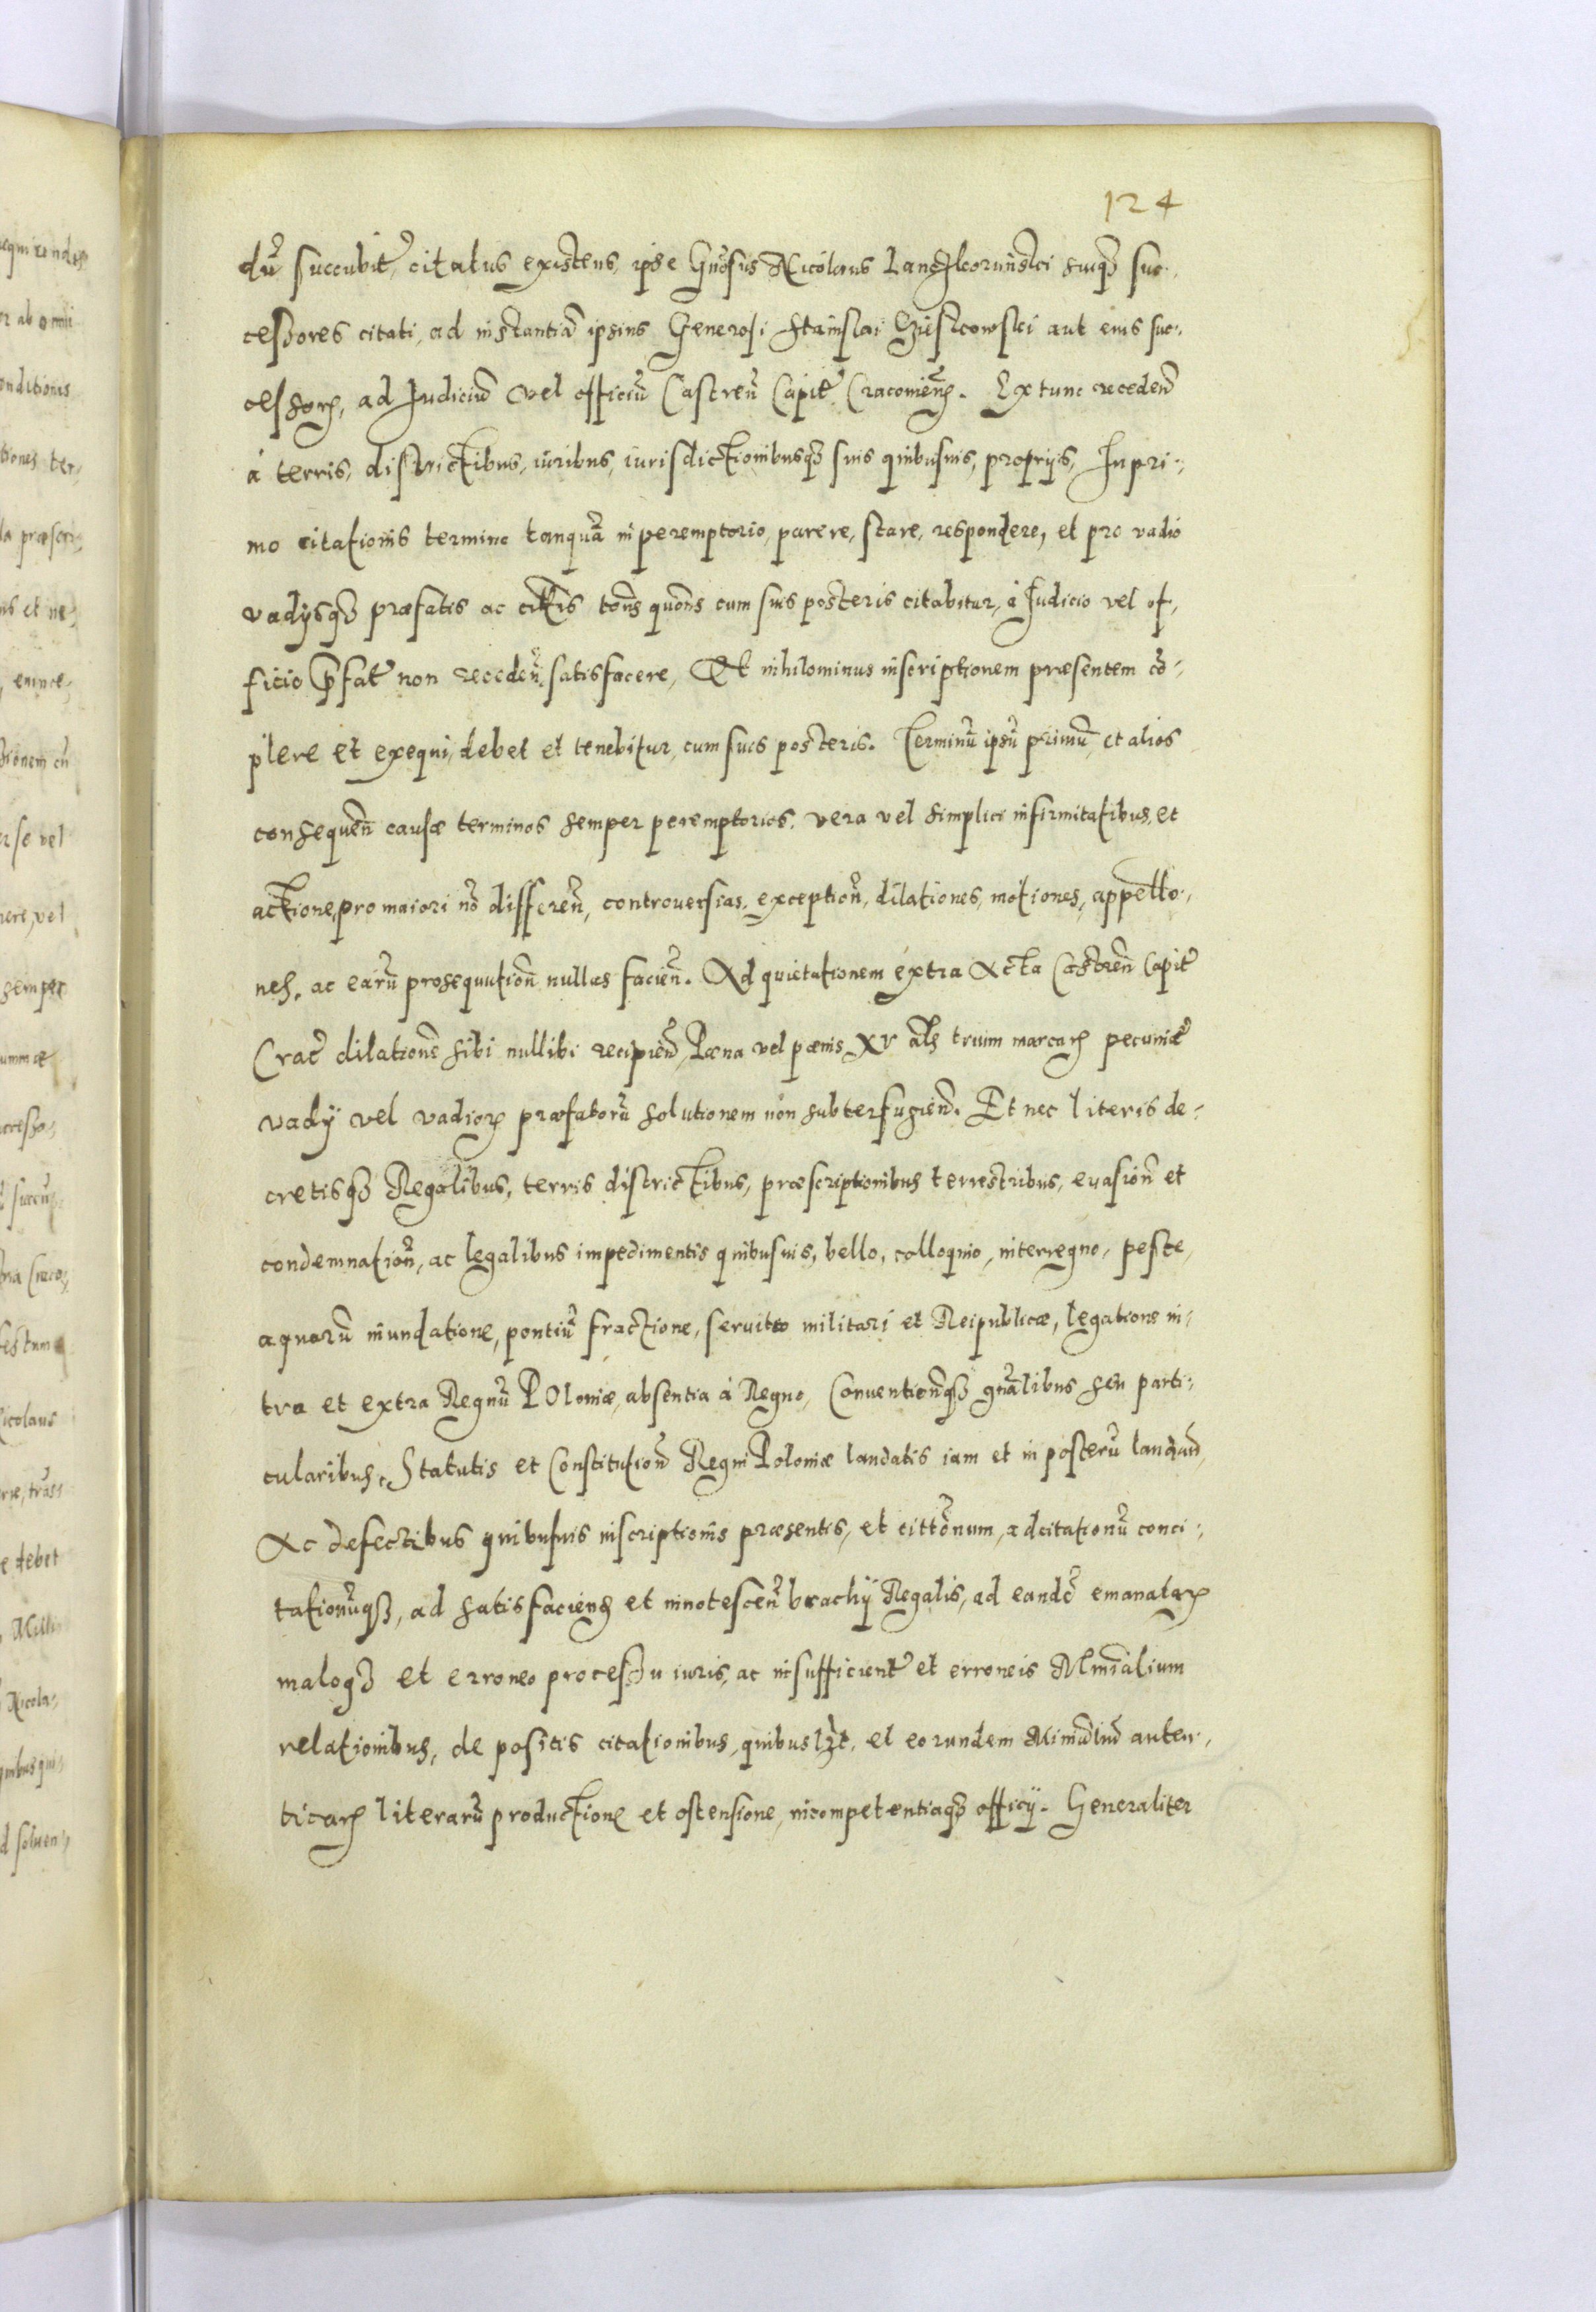 124
dũ succubit, citatus existens, ipse Gnosus Nicolaus Lanczkoruński suiq3 suc-
cessores citati, ad instantiã ipsius Generosi Stanislai aut eius suc-
cessorz, ad Iudiciũ vel officiũ Castreñ Capit Cracovieñ. Ex tunc recedeñ
à terris, districtibus, iuribus, iurisdictionibusq3 suis quibusuis, proprijs, In pri-
mo citationis termino tanquã in peremptorio, parere, stare, respondere, et pro vadio
vadijsq3 præfatis ac tõns quõns cum suis posteris citabitur, à Iudicio vel of-
ficio p̃fat non recedeñ, satisfacere, Et nihilominus inscriptionem præsentem cõ-
plere et exequi, debet et tenebitur, cum suis posteris. Terminũ ipsũ primũ, et alios
consequeñ causæ terminos semper peremptorios, vera vel simplici infirmitatibus, et
actione, pro maiori nõ differeñ, controuersias, exceptioñ, dilationes, motiones, appellõ-
nes, ac earũ prosequutioñ nullas facieñ. Ad quietationem extra Acta Castreñ Capit
Crac dilationẽ sibi nullibi recipieñ, Pæna vel pænis XV als trium marcarz pecuniæ
vadij vel vadiorz præfatorũ solutionem non subterfugieñ. Et nec literis de-
cretisq3 Regalibus, terris districtibus, præscriptionibus terrestribus, euasioñ et
condemnatioñ, ac legalibus impedimentis quibusuis, bello, colloquio, interregno, peste,
aquarũ inundatione, pontiũ fractione, seruitio militari et Reipublicæ, legatione in-
tra et extra Regnũ POloniæ, absentia à Regno, Conventioñq3 gñalibus seu parti-
cularibus, Statutis et Constitutioñ Regni Poloniæ laudatis iam et in posterũ laudañ,
Ac defectibus quibusuis inscriptionis præsentis, et cittõnum, adcitationũ conci-
tationũq3, ad satisfaciens et innotesceñ brachij Regalis, ad eandẽ emanatarz
maloq3 et erroneo processu iuris, ac insufficient et erroneis Mĩnialium
relationibus, de positis citationibus, quibuslz̃t, et eorundem Miniãliũ auten-
ticarz literarũ productione et ostensione, incompetentiaq3 officij. Generaliter